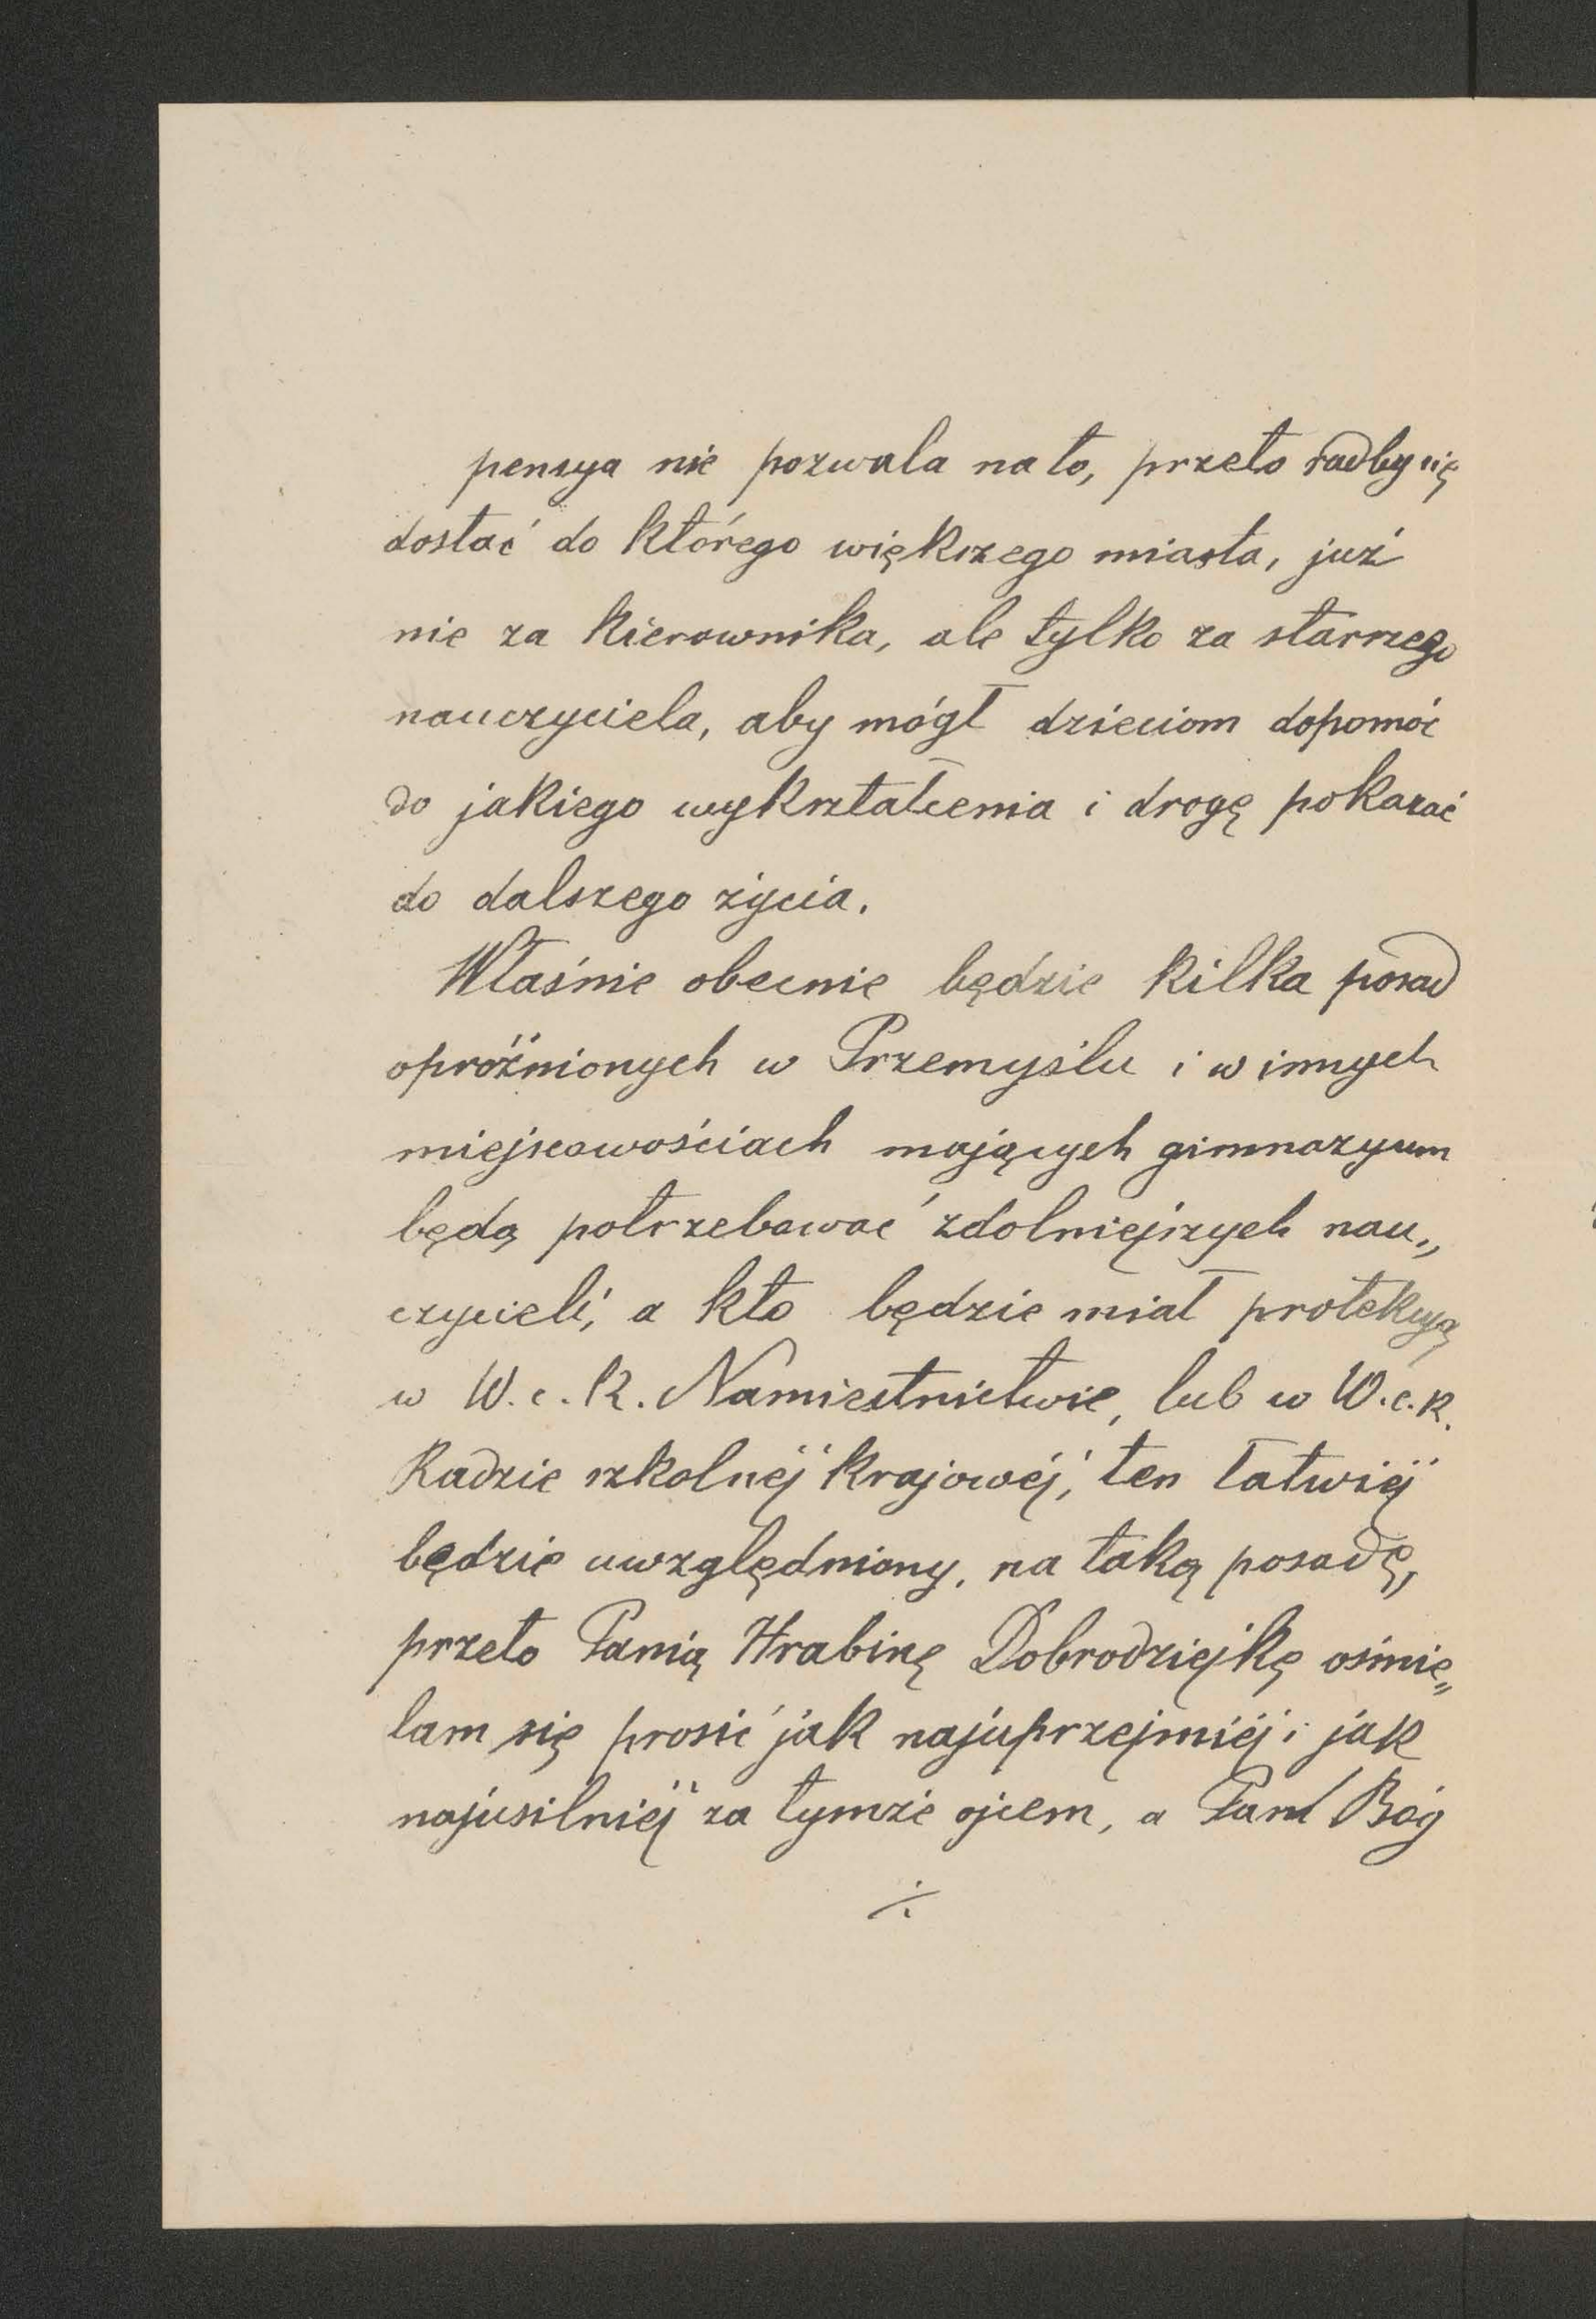 pensya nie pozwala na to, przeto radby się
dostać do którego większego miasta, już
nie za kierownika, ale tylko za starszego
nauczyciela, aby mógł dzieciom dopomóc
do jakiego wykształcenia i drogę pokazać
do dalszego życia.
Właśnie obecnie będzie kilka posad
opróżnionych w Przemyślu i w innych
miejscowościach mających gimnazyum
będą potrzebować zdolniejszych nau„
czycieli, a kto będzie miał protekcyą
w W. c. k. Namiestnictwie, lub w W. c. k.
Radzie szkolnéj krajowéj, ten łatwiéj
będzie uwzględniony, na taką posadę,
przeto Panią Hrabinę Dobrodziejkę ośmie„
lam się prosić jak najuprzejmiéj i jak
najusilniéj za tymże ojcem, a Pan Bóg
./.